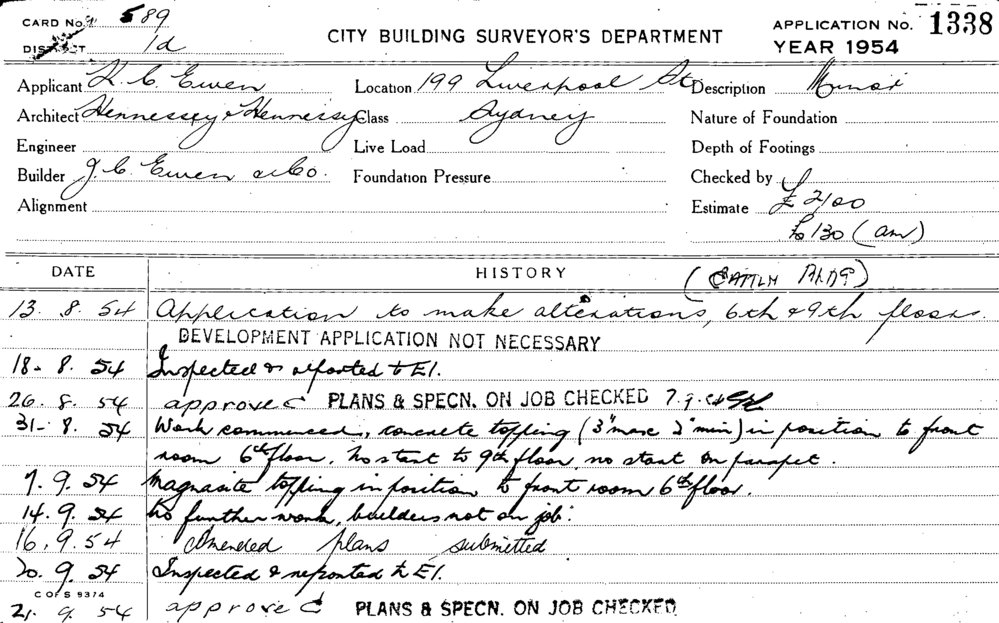 CARD No. 589
CITY BUILDING SURVEYOR'S DEPARTMENT
APPLICATION No. 1338
DISTRICT 1d
YEAR 1954
Applicant K. C. Ewen Location 199 Liverpool St Description Minor
Architect Hennessy & Hennessy Class Sydney Nature of Foundation
Engineer Live Load Depth of Footings
Builder J. C. Ewen & Co. Foundation Pressure Checked by
Alignment Estimate £ 2100
£130 (am)
DATE HISTORY (CATTLN BLDG)
13. 8. 54 Application to make alterations, 6th & 9th floors.
DEVELOPMENT APPLICATION NOT NECESSARY
18. 8. 54 Inspected & reported to E1.
26. 8. 54 approved PLANS & SPECN. ON JOB CHECKED 7.9.54
31. 8. 54 Work commenced, concrete topping (3" max 2" min) in position to front
room 6th floor. No start to 9th floor, no start on parapet.
7. 9. 54 Magnasite topping in position to front room 6th floor.
14. 9. 54 No further work, builders not on job.
16. 9. 54 Amended plans submitted
20. 9. 54 Inspected & reported to E1.
C OF S 9374
21. 9. 54 approved PLANS & SPECN. ON JOB CHECKED